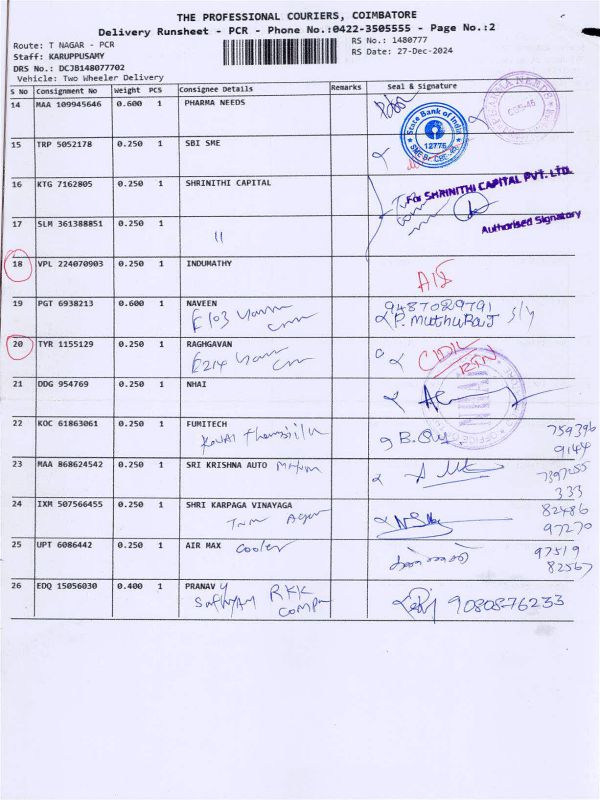 THE PROFESSIONAL COURIERS, COIMBATORE
Delivery Runsheet - PCR - Phone No.:0422-3505555 - Page No.:2
Route: T NAGAR - PCR
RS No.: 1480777
Staff: KARUPPUSAMY
RS Date: 27-Dec-2024
DRS No.: DCJB148077702
Vehicle: Two Wheeler Delivery
S No Consignment No Weight PCS Consignee Details Remarks Seal & Signature
14 MAA 109945646 0.600 1 PHARMA NEEDS
State Bank of India
12776
15 TRP 5052178 0.250 1 SBI SME
16 KTG 7162805 0.250 1 SHRINITHI CAPITAL
For SHRINITHI CAPITAL PVT. LTD.
Authorised Signatory
17 SLM 361388851 0.250 1
"
18 VPL 224070903 0.250 1 INDUMATHY
19 PGT 6938213 0.600 1 NAVEEN
E103
9487029791
P. MuthuRaJ
20 TYR 1155129 0.250 1 RAGHGAVAN
E214
RTN
21 DDG 954769 0.250 1 NHAI
OFFICE
22 KOC 61863061 0.250 1 FUMITECH
759396
9144
23 MAA 868624542 0.250 1 SRI KRISHNA AUTO
7397255
333
24 IXM 507566455 0.250 1 SHRI KARPAGA VINAYAGA
82486
97270
25 UPT 6086442 0.250 1 AIR MAX cooler
97519
82567
26 EDQ 15056030 0.400 1 PRANAV
RKK
9080876233